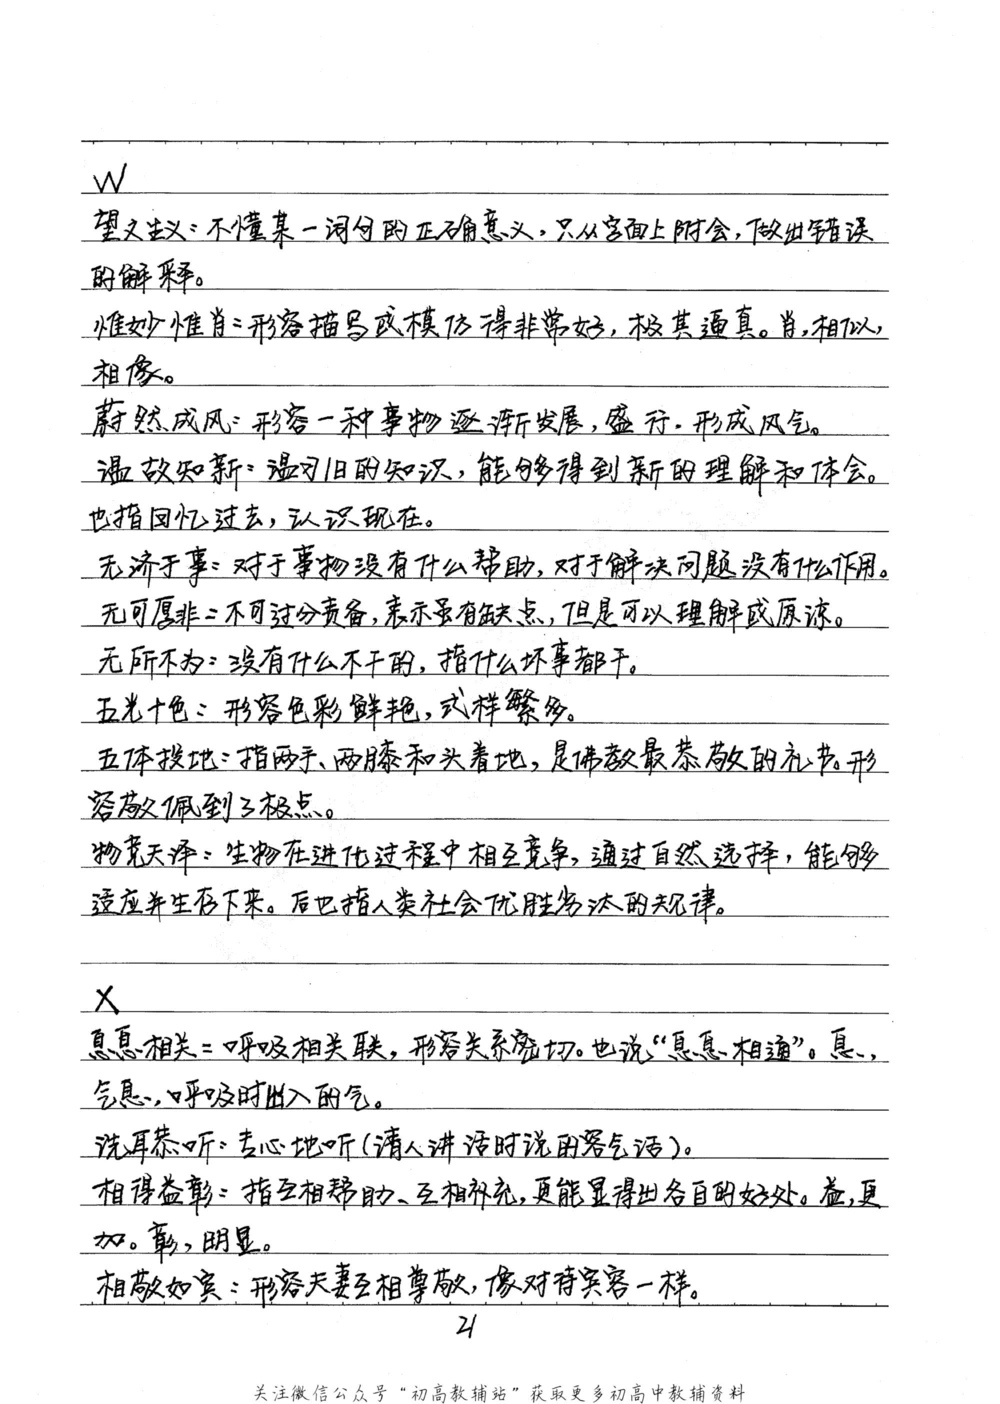 W
望文生义：不懂某一词句的正确意义，只从字面上附会，做出错误
的解释。
惟妙惟肖：形容描写或模仿得非常好，极其逼真。肖，相似，
相像。
蔚然成风：形容一种事物逐渐发展，盛行，形成风气。
温故知新：温习旧的知识，能够得到新的理解和体会。
也指回忆过去，认识现在。
无济于事：对于事物没有什么帮助，对于解决问题没有什么作用。
无可厚非：不可过分责备，表示虽有缺点，但是可以理解或原谅。
无所不为：没有什么不干的，指什么坏事都干。
五光十色：形容色彩鲜艳，式样繁多。
五体投地：指两手、两膝和头着地，是佛教最恭敬的礼节。形
容敬佩到了极点。
物竞天择：生物在进化过程中相互竞争，通过自然选择，能够
适应并生存下来。后也指人类社会优胜劣汰的规律。
X
息息相关：呼吸相关联，形容关系密切。也说“息息相通”。息，
气息，呼吸时出入的气。
洗耳恭听：专心地听（请人讲话时说的客气话）。
相得益彰：指互相帮助、互相补充，更能显得出各自的好处。益，更
加。彰，明显。
相敬如宾：形容夫妻互相尊敬，像对待宾客一样。
21
关注微信公众号“初高教辅站”获取更多初高中教辅资料